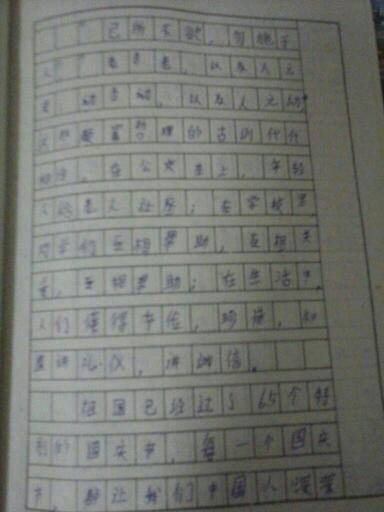 “己所不欲，勿施于
人”“老吾老，以及人之
老，幼吾幼，以及人之幼”
这些凝聚哲理的古训代代
相传，在公交车上，年轻
人给老人让座；在学校里
同学们互相帮助，互相关
爱，互相帮助；在生活中，
人们懂得节俭，珍惜，知
道讲礼仪，讲诚信。
祖国已经过了65个特
别的国庆节，每一个国庆
节，都让我们中国人深深